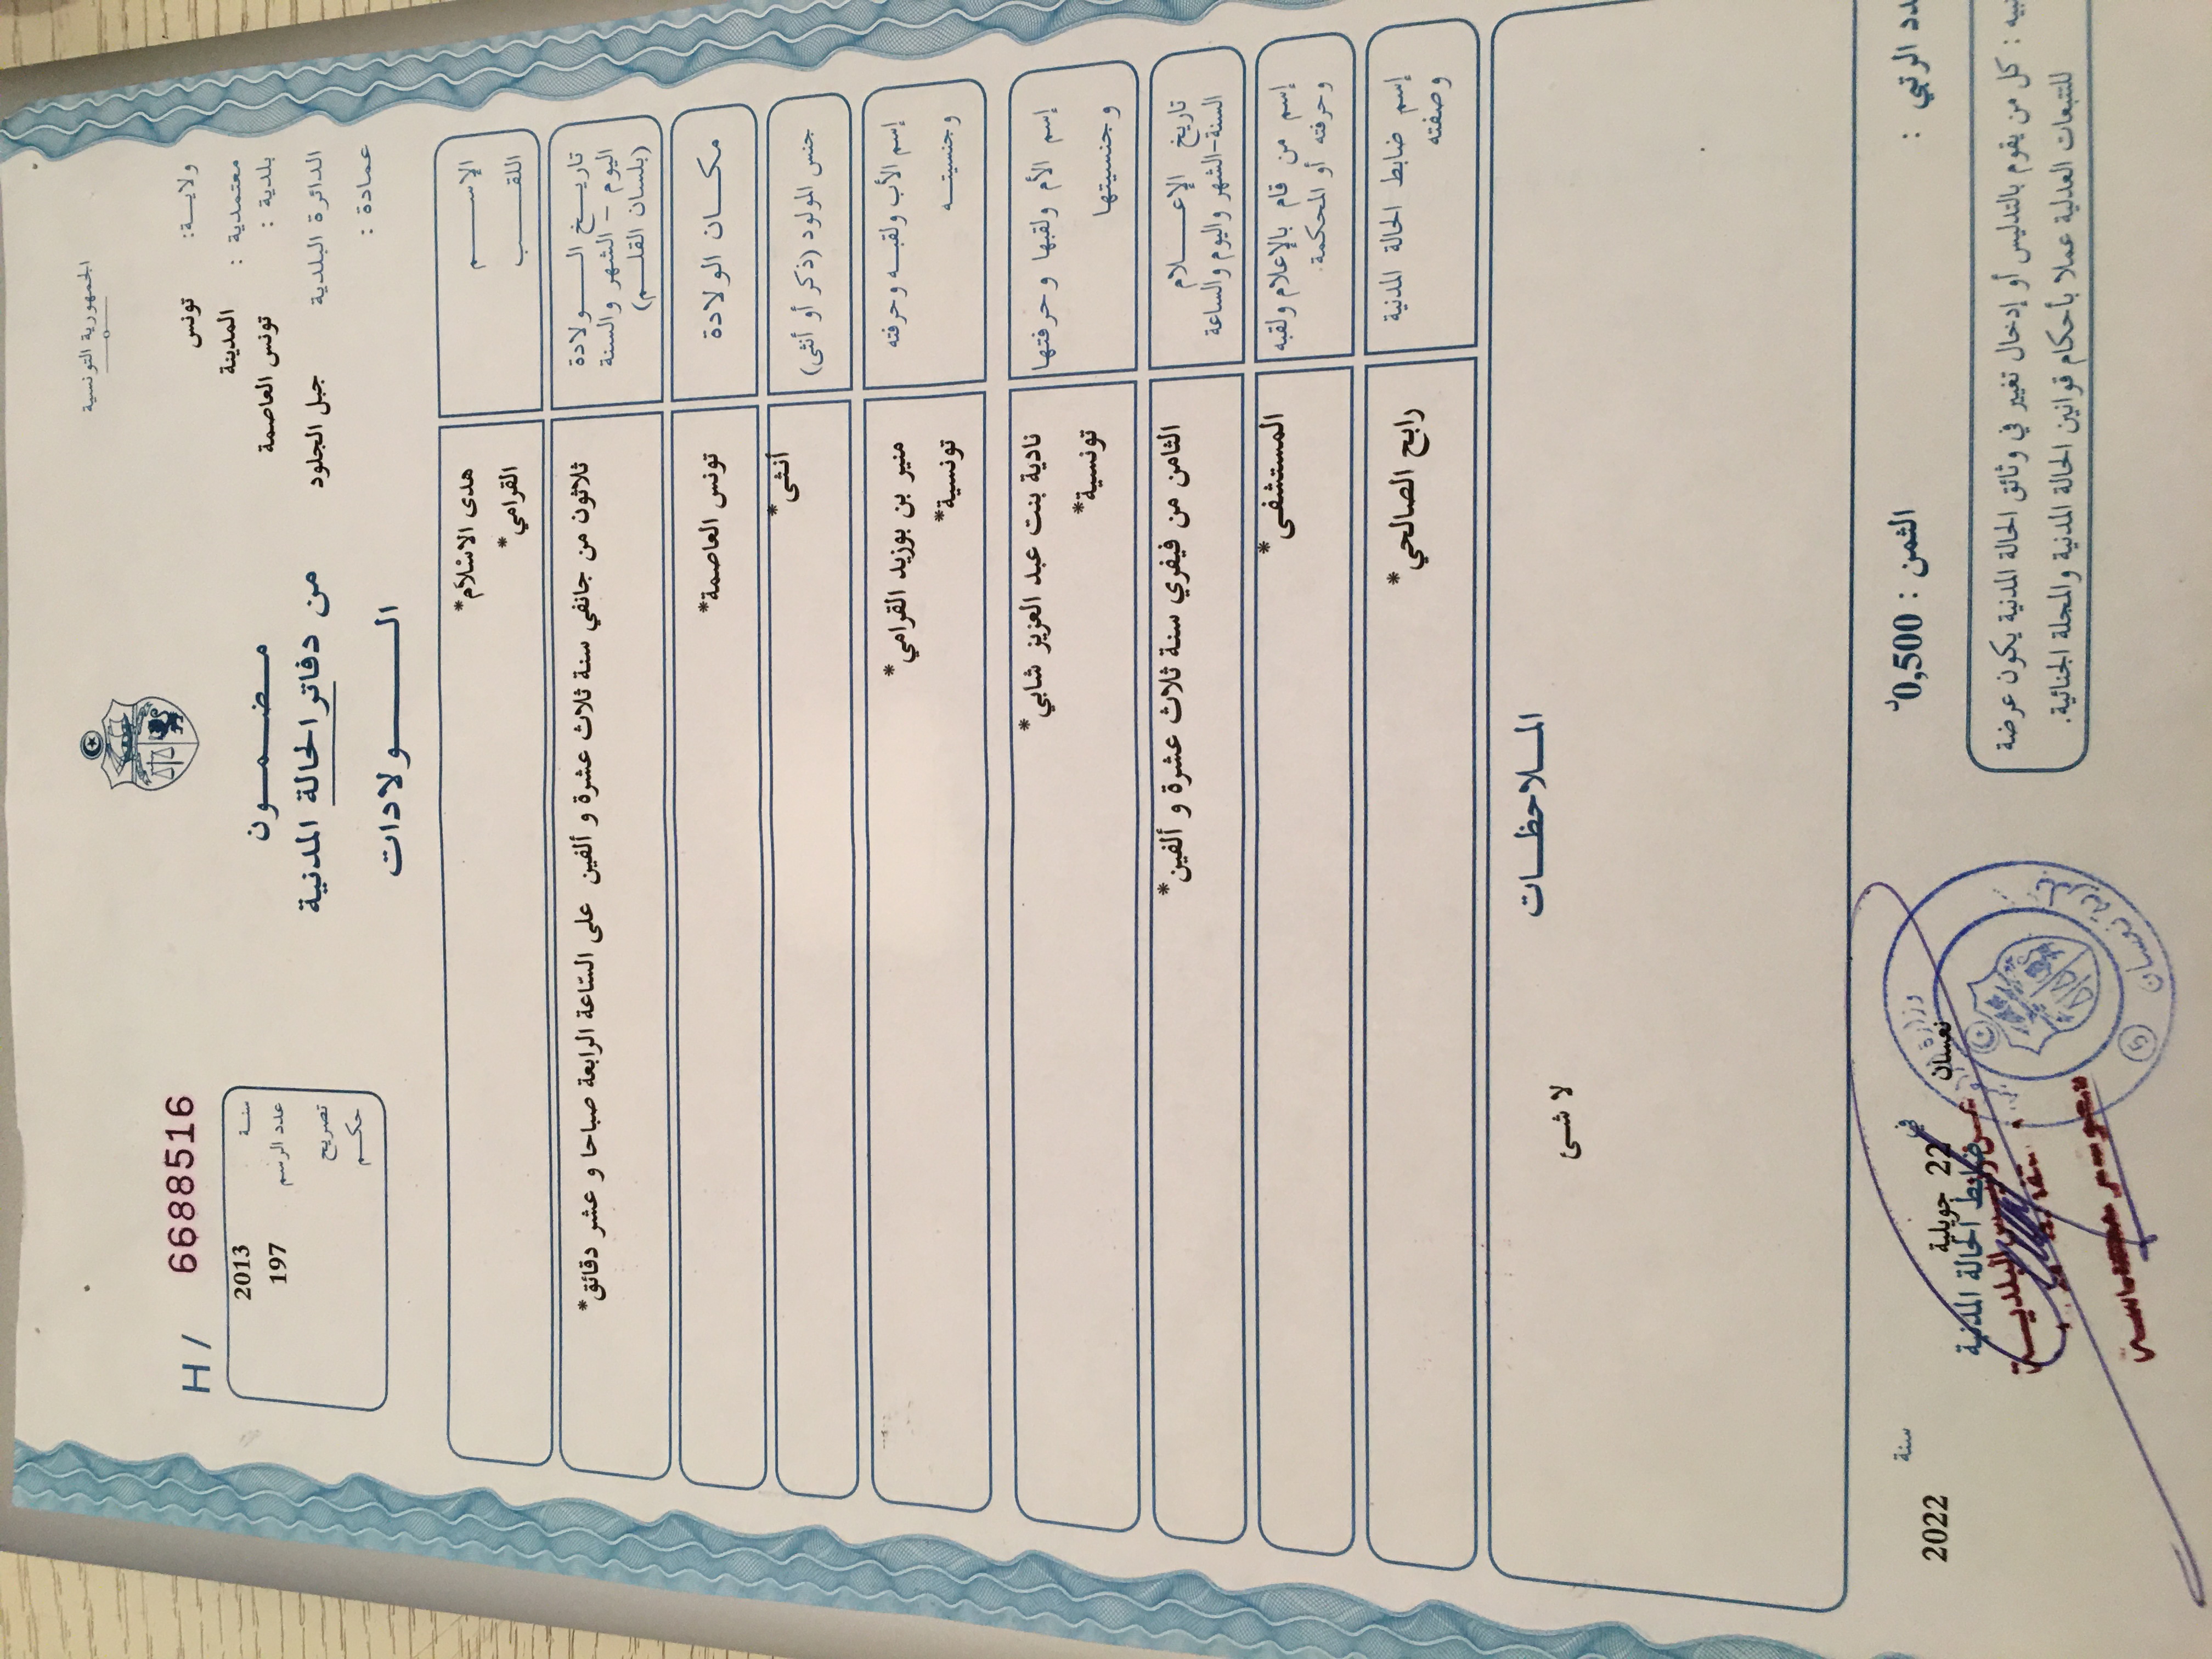 الجمهورية التونسية
ولاية: تونس
معتمدية : المدينة
بلدية : تونس العاصمة
الدائرة البلدية جبل الجلود
عمادة :
مضمون
من دفاتر الحالة المدنية
الولادات
H / 6688516
سنة 2013
عدد الرسم 197
تصريح
حكم
الإسم هدى الاسْلاَم*
اللقب القرامي*
تاريخ الولادة
اليوم - الشهر والسنة
(بلسان القلم)
ثلاثون من جانفي سنة ثلاث عشرة و ألفين على السّاعة الرابعة صباحا و عشر دقائق*
مكان الولادة تونس العاصمة*
جنس المولود (ذكر أو أنثى) أنثى*
إسم الأب ولقبه وحرفته منير بن بوزيد القرامي*
وجنسيته تونسية*
إسم الأم ولقبها وحرفتها نادية بنت عبد العزيز شابي*
وجنسيتها تونسية*
تاريخ الإعلام
السنة-الشهر واليوم والساعة
الثامن من فيفري سنة ثلاث عشرة و ألفين*
إسم من قام بالإعلام ولقبه
وحرفته أو المحكمة.
المستشفى*
إسم ضابط الحالة المدنية
وصفته
رابح الصالحي*
الملاحظات
لا شئ
دد الرتبي :
الثمن : 0,500د
نعسان في 22 جويلية سنة 2022
ضابط الحالة المدنية
بيه : كل من يقوم بالتدليس أو إدخال تغيير في وثائق الحالة المدنية يكون عرضة
للتتبعات العدلية عملا بأحكام قوانين الحالة المدنية والمجلة الجنائية.